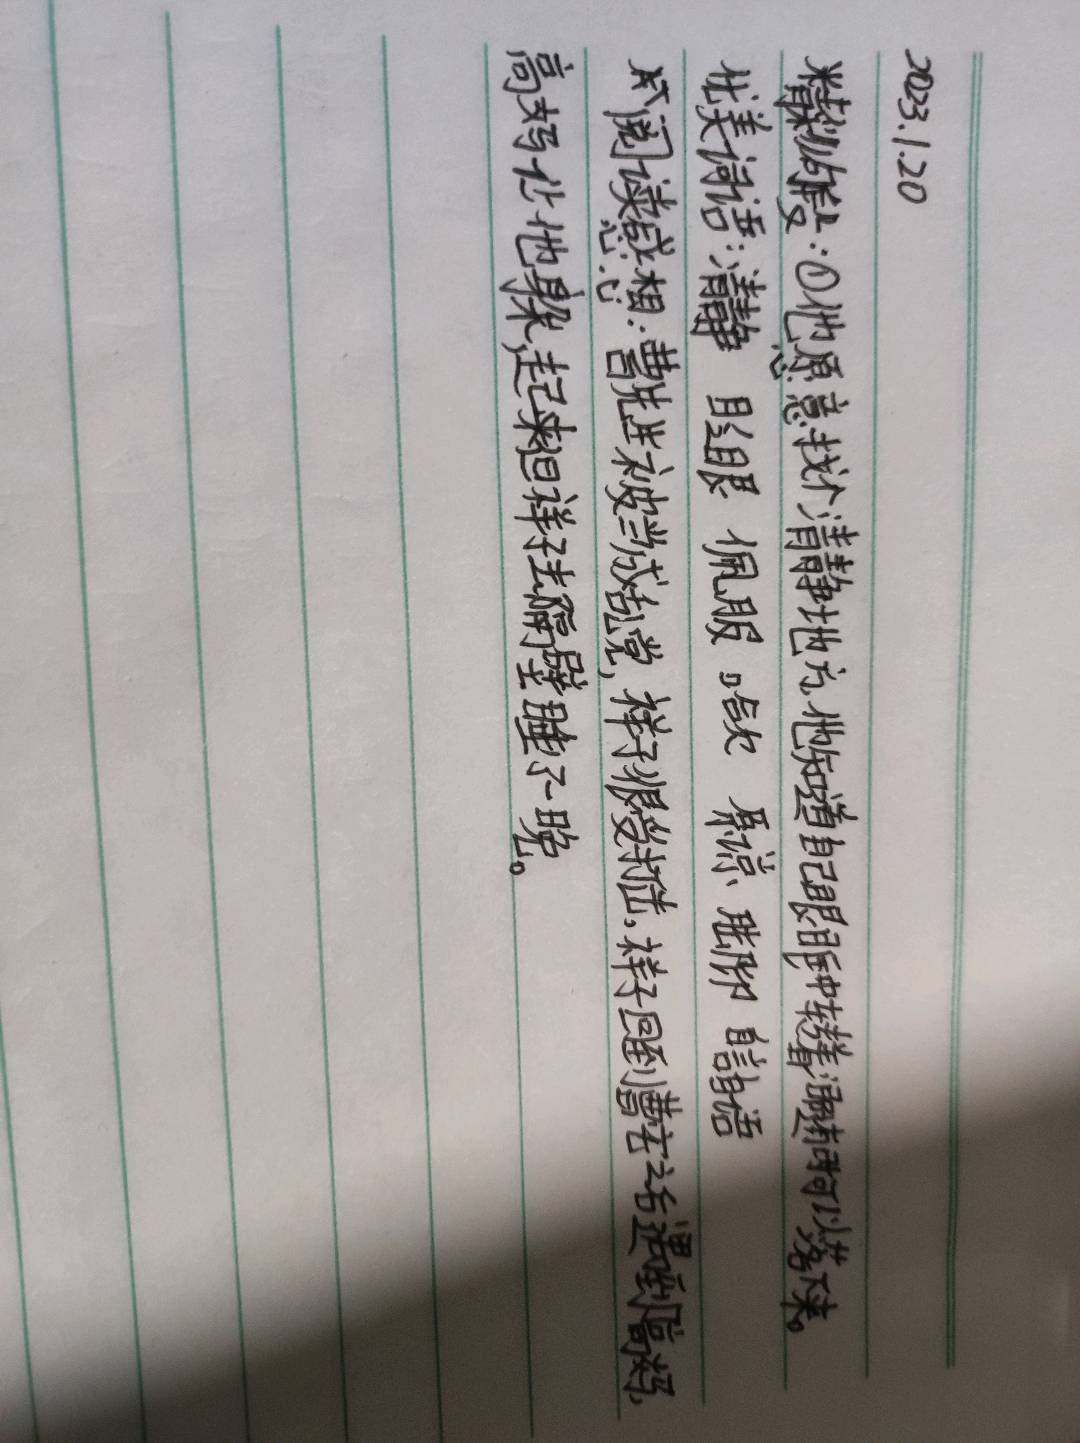 2023.1.20
精彩的段：①他愿意找个清静地方，他知道自己眼眶中转着泪随时可以落下来。
优美词语：清静 眼 佩服 原谅 胜 语
阅读感想：曹先生被当成乱党，祥子很受打击。祥子回到曹宅之后遇到高妈，
高妈让他躲起来但祥子去隔壁睡了一晚。